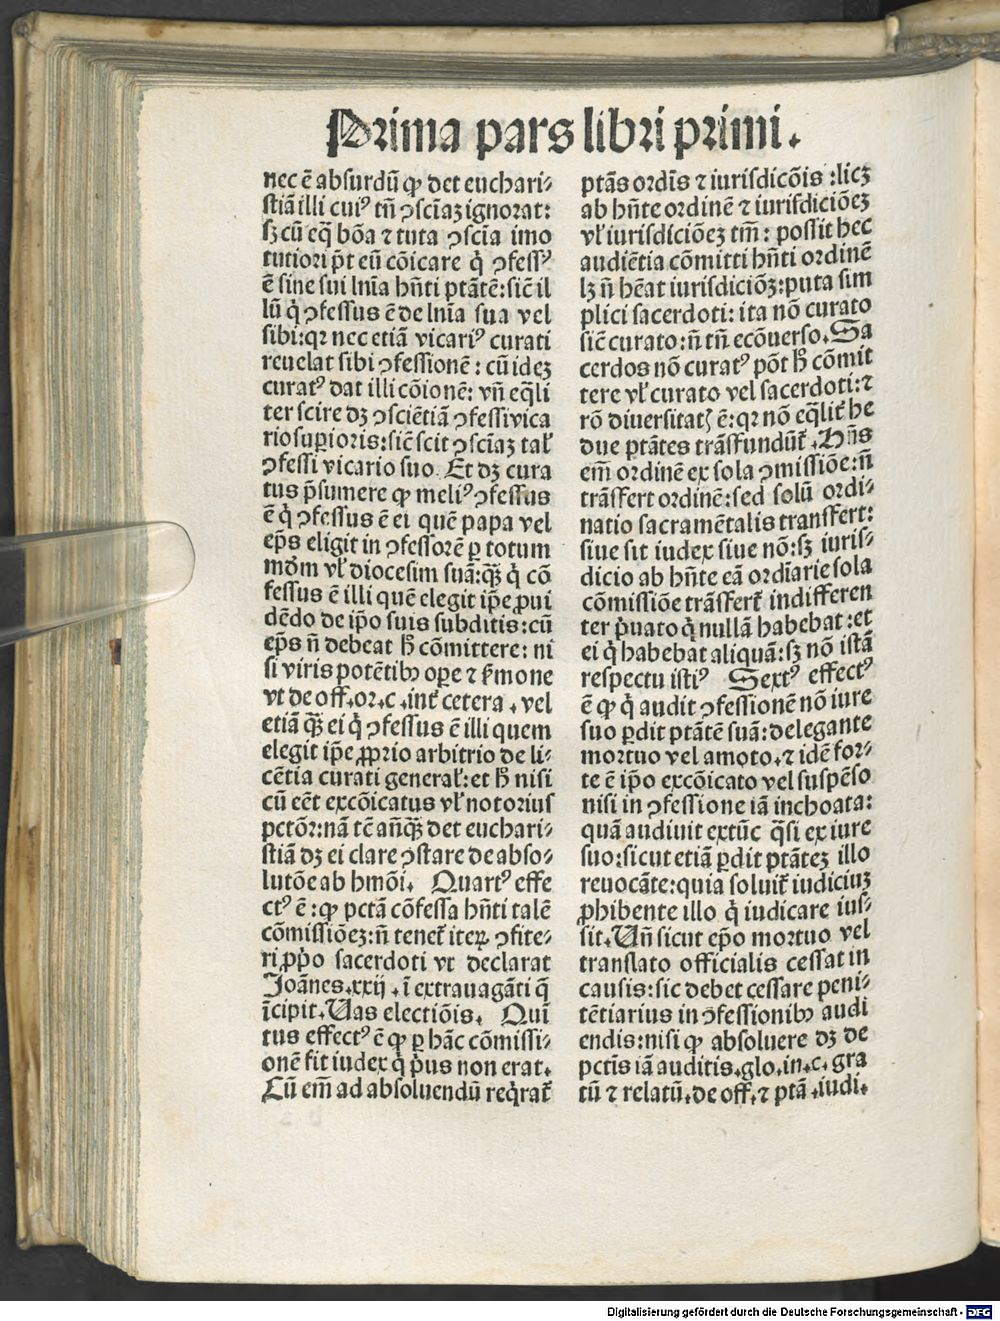 Prima pars libri primi.
nec ē absurdū ꝙ det euchari⸗
stiā illi cuiꝰ tn̄ ↄsciāꝫ ignorat:
sꝫ cū eq̄ bōa ⁊ tuta ↄscīa imo
tutiori p̄t eū cōicare q̇ ↄfessꝰ
ē sine sui lnīa hn̄ti ptātē: sic̄ il
lū q̇ ↄfessus ē de lnīa sua vel
sibi: qꝛ nec etiā vicariꝰ curati
reuelat sibi ↄfessionē: cū ideꝫ
curatꝰ dat illi cōionē: vn̄ eq̄li
ter scire dꝫ ↄsciētiā ↄfessi vica
rio suꝑioris: sic̄ scit ↄsciāꝫ tal̕
ↄfessi vicario suo. Et dꝫ cura
tus p̄sumere ꝙ meliꝰ ↄfessus
ē q̇ ↄfessus ē ei quē papa vel
ep̄s eligit in ↄfessorē ꝑ totum
mōm vl̕ diocesim suā: qꝫ̄ q̇ cō
fessus ē illi quē elegit ip̄e ꝓui
dēdo de ip̄o suis subditis: cū
ep̄s n̄ debeat h̄ cōmittere: ni
si viris potētibꝰ oꝑe ⁊ ẜmone
vt de off. or. c. int̕ cetera. vel
etiā qꝫ̄ ei q̇ ↄfessus ē illi quem
elegit ip̄e ꝓprio arbitrio de li⸗
cētia curati general̕: et h̄ nisi
cū eēt excōicatus vl̕ notorius
pctōꝛ: nā tē an̄qꝫ̄ det euchari⸗
stiā dꝫ ei clare ↄstare de abso⸗
lutōe ab hmōi. Quartꝰ effe
ctꝰ ē: ꝙ pctā cōfessa hn̄ti talē
cōmissiōeꝫ: n̄ tenet̕ iteꝝ ↄfite⸗
ri ꝓp̄o sacerdoti vt declarat
Joānes. xxij. ī extrauagāti q̄
īcipit. Uas electiōis. Quī
tus effectꝰ ē ꝙ ꝑ hāc cōmissi⸗
onē fit iudex q̇ p̓us non erat.
Cū em̄ ad absoluendū req̇rat̕
ptās ordīs ⁊ iurisdicōis: licꝫ
ab hn̄te ordinē ⁊ iurisdiciōeꝫ
vl̕ iurisdiciōeꝫ tm̄: possit hec
audiētia cōmitti hn̄ti ordinē
lꝫ n̄ hēat iurisdiciōꝫ: puta sim
plici sacerdoti: ita nō curato
sic̄ curato: n̄ tn̄ ecōuerso. Sa
cerdos nō curatꝰ pōt h̄ cōmit
tere vl̕ curato vel sacerdoti: ⁊
rō diuersitatꝭ ē: qꝛ nō eq̄lit̕ he
due ptātes trāsfundūt̕. Hn̄s
em̄ ordinē ex sola ↄmissiōe: n̄
trāsfert ordinē: sed solū ordi⸗
natio sacramētalis transfert:
siue sit iudex siue nō: sꝫ iuris⸗
dicio ab hn̄te eā ordīarie sola
cōmissiōe trāsfert̕ indifferen
ter p̓uato q̇ nullā habebat: et
ei q̇ habebat aliquā: sꝫ nō istā
respectu istiꝰ Sextꝰ effectꝰ
ē ꝙ q̇ audit ↄfessionē nō iure
suo ꝑdit ptātē suā: delegante
mortuo vel amoto. ⁊ idē for⸗
te ē ip̄o excōicato vel suspēso
nisi in ↄfessione iā inchoata:
quā audiuit extūc q̄si ex iure
suo: sicut etiā ꝑdit ptāteꝫ illo
reuocāte: quia soluit̕ iudiciuꝫ
ꝓhibente illo q̇ iudicare ius⸗
sit. Un̄ sicut ep̄o mortuo vel
translato officialis cessat in
causis: sic debet cessare peni⸗
tētiarius in ↄfessionibꝰ audi
endis: nisi ꝙ absoluere dꝫ de
pctīs iā auditis. glo. in. c. gra
tū ⁊ relatū. de off. ⁊ ptā. iudi.
Digitalisierung gefördert durch die Deutsche Forschungsgemeinschaft - DFG